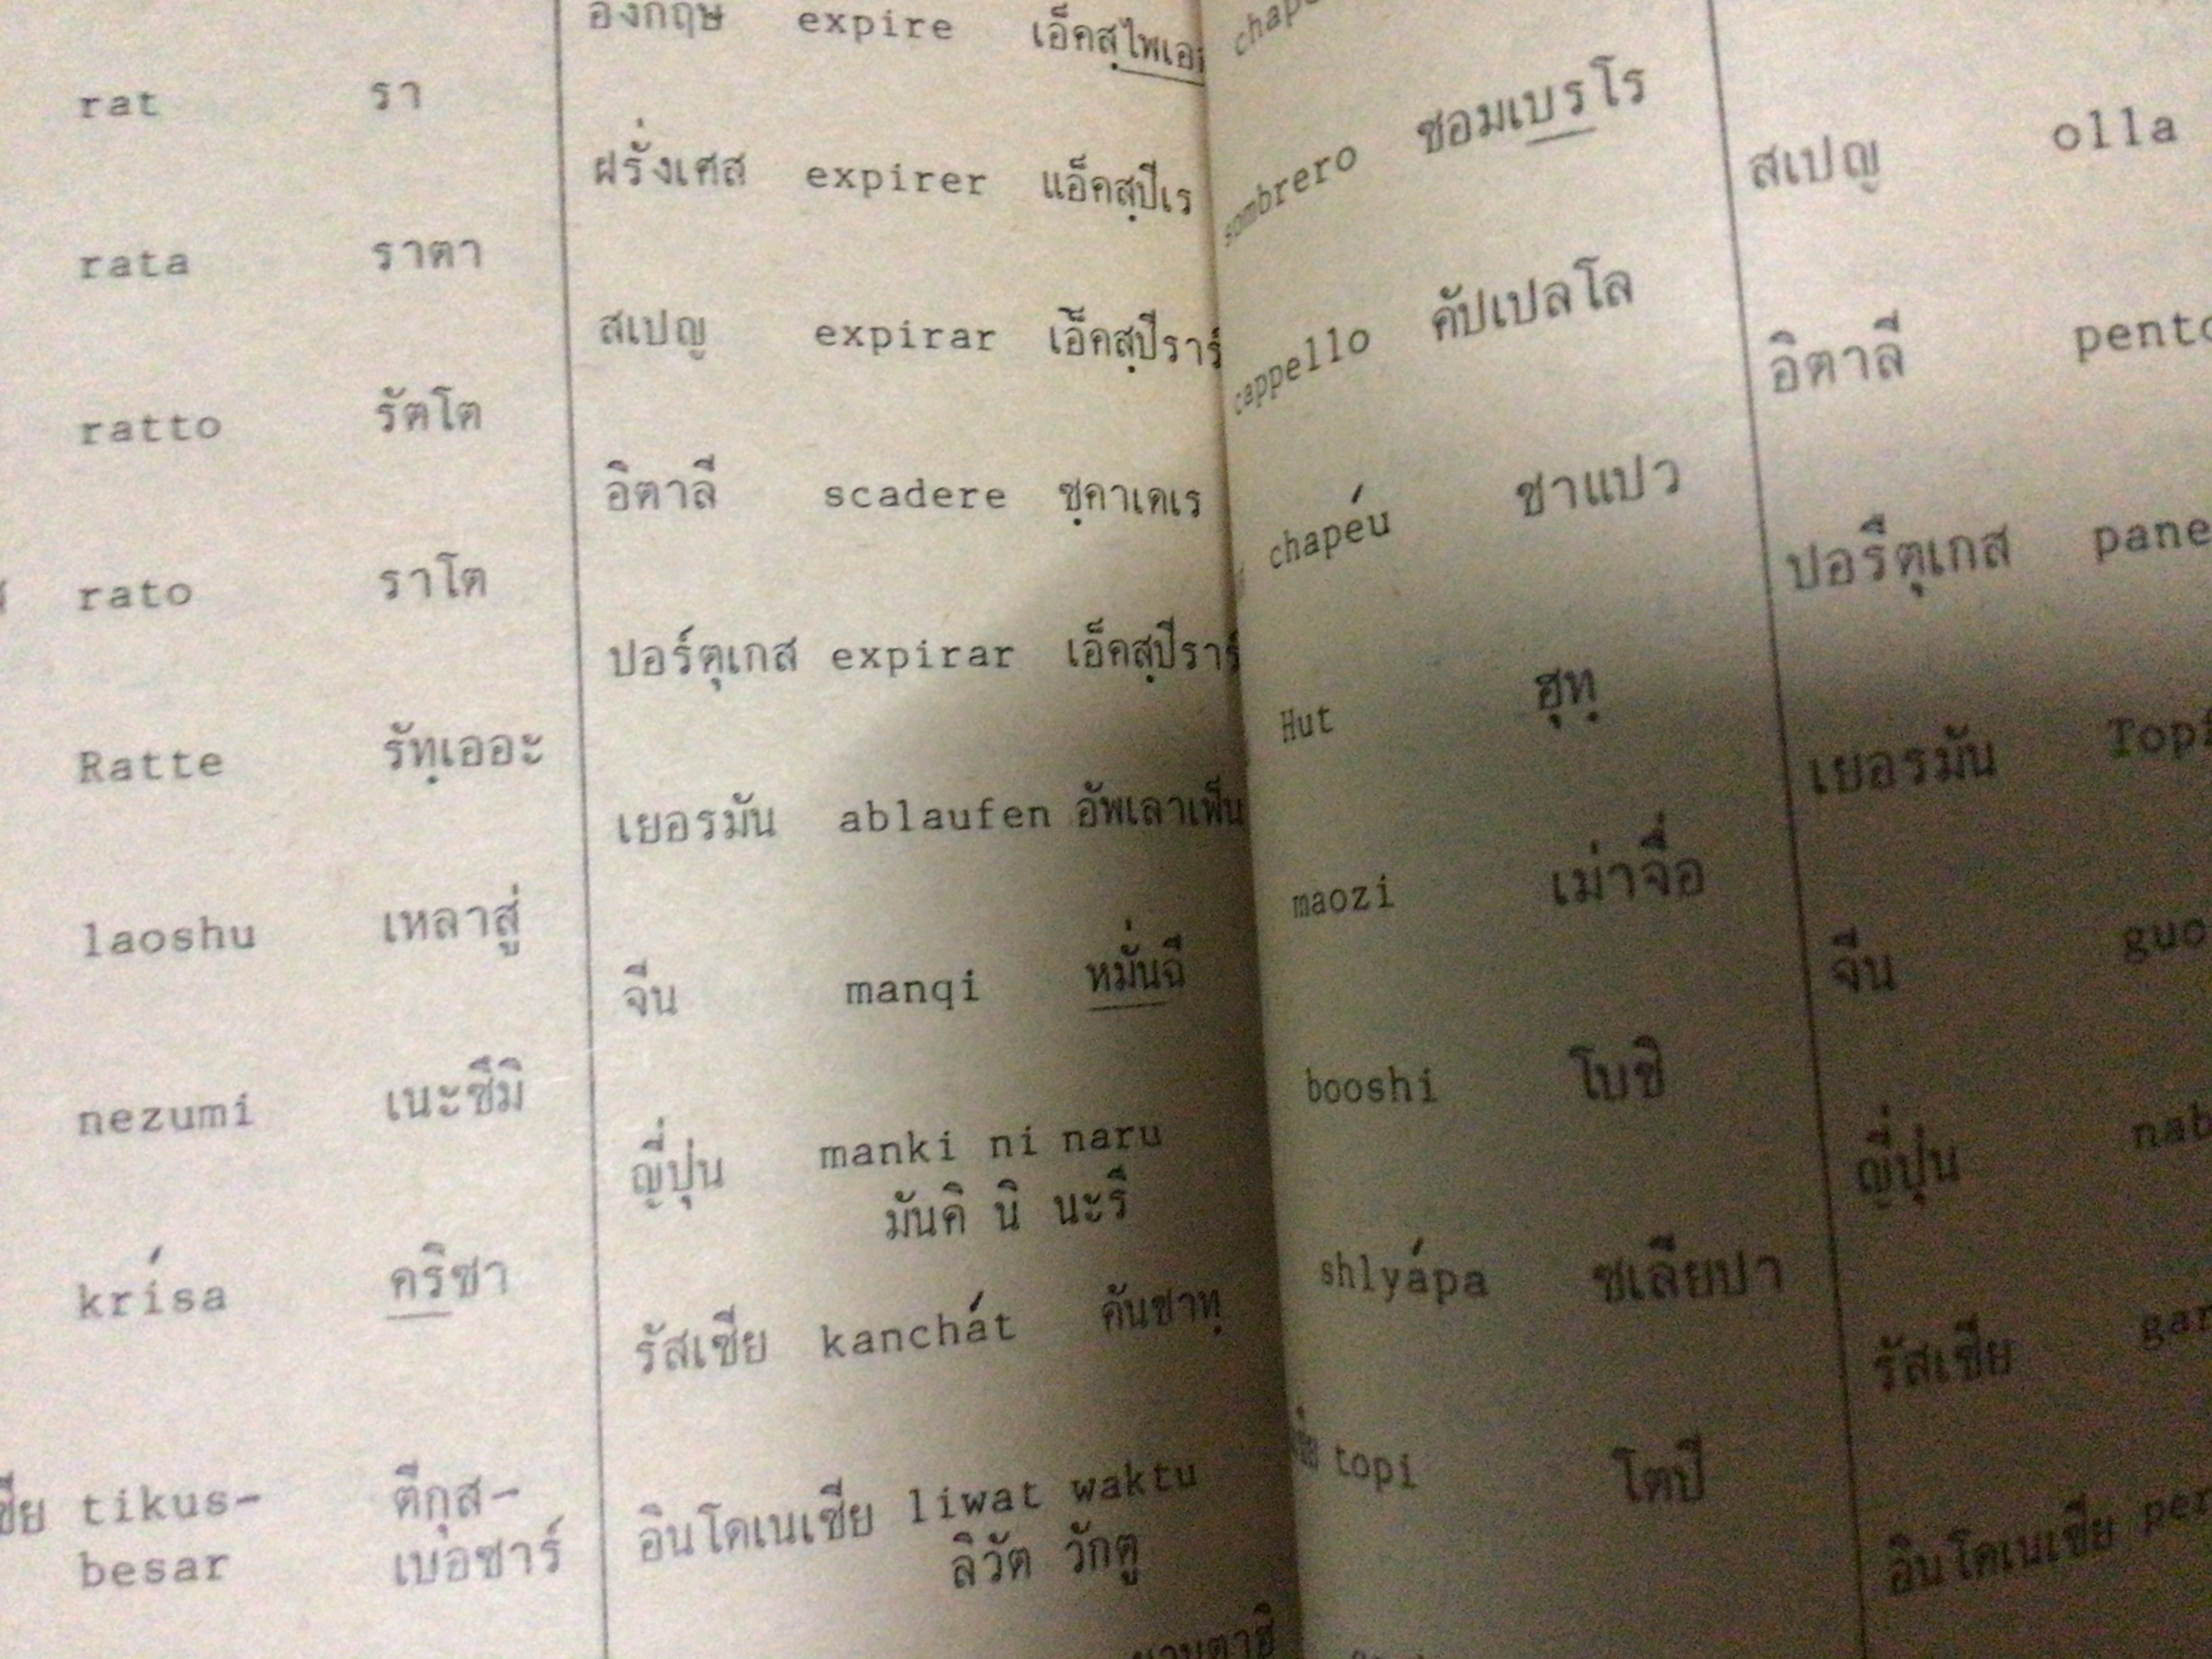 rat รา
rata ราตา
ratto รัตโต
rato ราโต
Ratte รัทฺเออะ
laoshu เหลาสู่
nezumi เนะซึมิ
krísa คริซา
tikus- ตีกุส-
besar เบอซาร์
อังกฤษ expire
ฝรั่งเศส expirer แอ็คสฺปีเร
สเปญ expirar เอ็คสฺปีราร์
อิตาลี scadere ซฺคาเดเร
ปอร์ตุเกส expirar เอ็คสฺปีราร์
เยอรมัน ablaufen อัพเลาเฟ็น
จีน manqi หมั่นฉี
ญี่ปุ่น manki ni naru
มันคิ นิ นะรึ
รัสเซีย kanchát คันชาทฺ
อินโดเนเซีย liwat waktu
ลิวัต วักตู
sombrero ซอมเบรโร
cappello คัปเปลโล
chapéu ชาแปว
Hut ฮุทฺ
maozi เม่าจื่อ
booshi โบชิ
shlyápa ชเลียปา
topi โตปี
สเปญ olla
อิตาลี
ปอร์ตุเกส
เยอรมัน
จีน
ญี่ปุ่น
รัสเซีย
อินโดเนเซีย